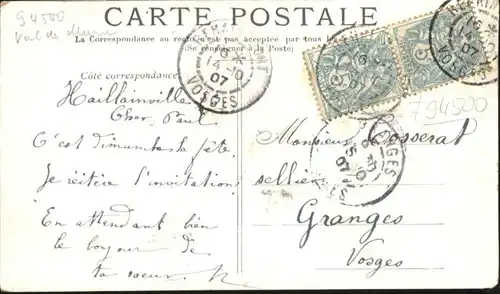 94500
Val de Marne
CARTE POSTALE
La Correspondance au recto n'est pas acceptée par tous les
(Se renseigner à la Poste)
Côté correspondance
14 - 10
07
VOSGES
07
VOSGES
5
5
794500
Haillainville
Cher Paul
C'est dimanche la fête
Je réitère l'invitation
En attendant bien
le bonjour de
ta soeur
Monsieur Cosserat
sellier
Granges
Vosges
GRANGES
07
VOSGES